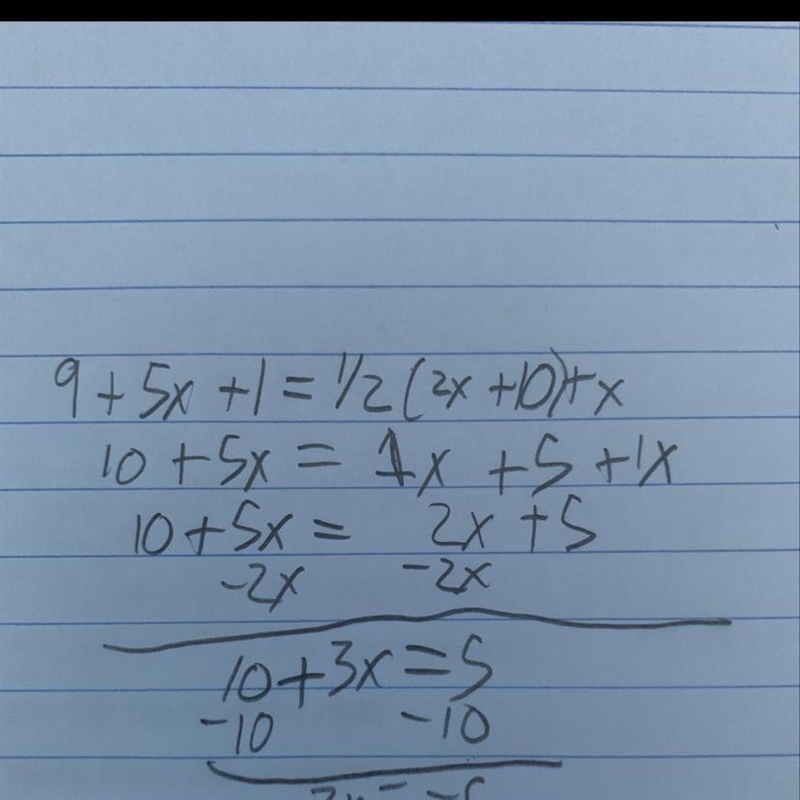 9 + 5x + 1 = 1/2 (2x + 10) + x
10 + 5x = 1x + 5 + 1x
10 + 5x = 2x + 5
-2x -2x
10 + 3x = 5
-10 -10